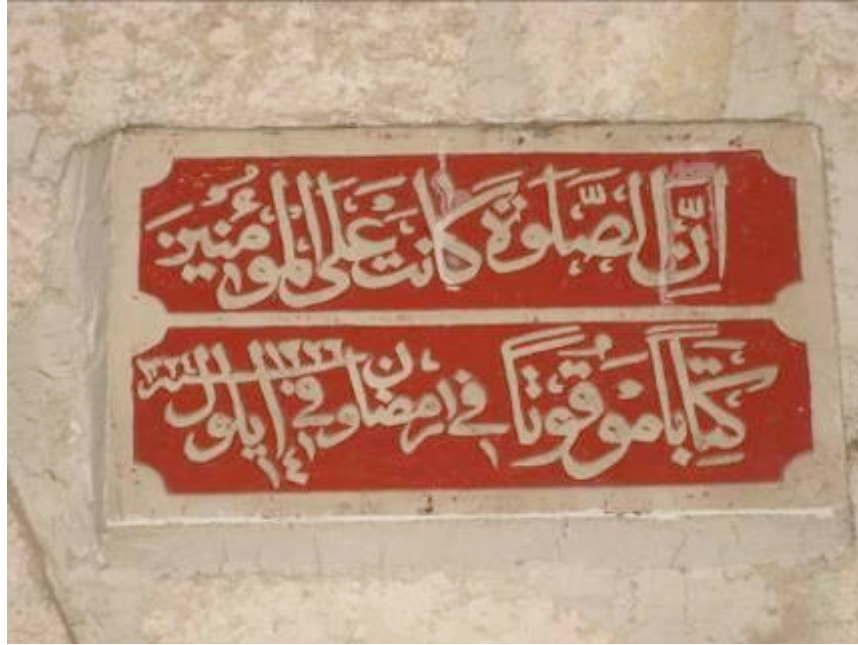 اِنَّ الصَّلٰوةَ كَانَتْ عَلَى الْمُؤْمِنِينَ
كِتَابًا مَوْقُوتًا في ١ رمضان ١٣٢٦ وفي ١٤ ايلول سنه ١٣٢٤